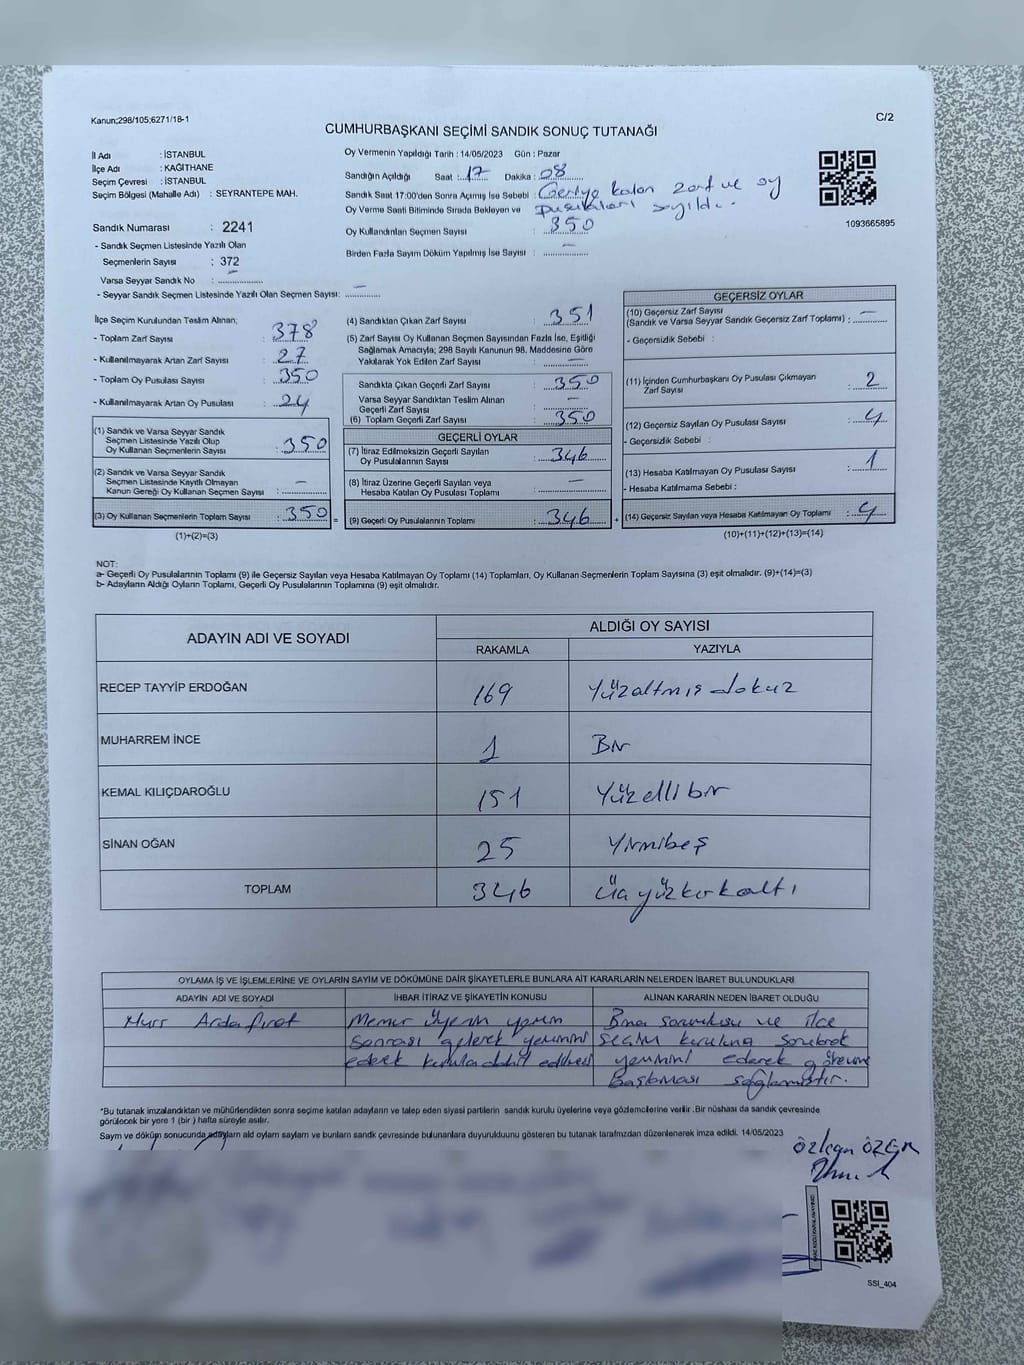 Kanun;298/105;6271/18-1
C/2
CUMHURBAŞKANI SEÇİMİ SANDIK SONUÇ TUTANAĞI
İl Adı : İSTANBUL
İlçe Adı : KAĞITHANE
Seçim Çevresi : İSTANBUL
Seçim Bölgesi (Mahalle Adı) : SEYRANTEPE MAH.
Oy Vermenin Yapıldığı Tarih : 14/05/2023 Gün : Pazar
Sandığın Açıldığı Saat : 17 Dakika : 08
Sandık Saat 17:00'den Sonra Açımış İse Sebebi : Geriye kalan zarf ve oy
Oy Verme Saati Bitiminde Sırada Bekleyen ve pusulaları sayıldı.
Oy Kullandırılan Seçmen Sayısı : 350
Birden Fazla Sayım Döküm Yapılmış İse Sayısı : –
1093665895
Sandık Numarası : 2241
- Sandık Seçmen Listesinde Yazılı Olan
Seçmenlerin Sayısı : 372
Varsa Seyyar Sandık No : –
- Seyyar Sandık Seçmen Listesinde Yazılı Olan Seçmen Sayısı: –
İlçe Seçim Kurulundan Teslim Alınan;
- Toplam Zarf Sayısı : 378
- Kullanılmayarak Artan Zarf Sayısı : 27
- Toplam Oy Pusulası Sayısı : 350
- Kullanılmayarak Artan Oy Pusulası : 24
(1) Sandık ve Varsa Seyyar Sandık
Seçmen Listesinde Yazılı Olup
Oy Kullanan Seçmenlerin Sayısı : 350
(2) Sandık ve Varsa Seyyar Sandık
Seçmen Listesinde Kayıtlı Olmayan
Kanun Gereği Oy Kullanan Seçmen Sayısı : –
(3) Oy Kullanan Seçmenlerin Toplam Sayısı : 350 =
(1)+(2)=(3)
(4) Sandıktan Çıkan Zarf Sayısı : 351
(5) Zarf Sayısı Oy Kullanan Seçmen Sayısından Fazla İse, Eşitliği
Sağlamak Amacıyla; 298 Sayılı Kanunun 98. Maddesine Göre
Yakılarak Yok Edilen Zarf Sayısı : –
Sandıkta Çıkan Geçerli Zarf Sayısı : 350
Varsa Seyyar Sandıktan Teslim Alınan
Geçerli Zarf Sayısı : –
(6) Toplam Geçerli Zarf Sayısı : 350
GEÇERLİ OYLAR
(7) İtiraz Edilmeksizin Geçerli Sayılan
Oy Pusulalarının Sayısı : 346
(8) İtiraz Üzerine Geçerli Sayılan veya
Hesaba Katılan Oy Pusulası Toplamı : –
(9) Geçerli Oy Pusulalarının Toplamı : 346 +
GEÇERSİZ OYLAR
(10) Geçersiz Zarf Sayısı
(Sandık ve Varsa Seyyar Sandık Geçersiz Zarf Toplamı) : –
- Geçersizlik Sebebi :
(11) İçinden Cumhurbaşkanı Oy Pusulası Çıkmayan
Zarf Sayısı : 2
(12) Geçersiz Sayılan Oy Pusulası Sayısı : 4
- Geçersizlik Sebebi :
(13) Hesaba Katılmayan Oy Pusulası Sayısı : 1
- Hesaba Katılmama Sebebi :
(14) Geçersiz Sayılan veya Hesaba Katılmayan Oy Toplamı : 4
(10)+(11)+(12)+(13)=(14)
NOT:
a- Geçerli Oy Pusulalarının Toplamı (9) ile Geçersiz Sayılan veya Hesaba Katılmayan Oy Toplamı (14) Toplamları, Oy Kullanan Seçmenlerin Toplam Sayısına (3) eşit olmalıdır. (9)+(14)=(3)
b- Adayların Aldığı Oyların Toplamı, Geçerli Oy Pusulalarının Toplamına (9) eşit olmalıdır.
ADAYIN ADI VE SOYADI
ALDIĞI OY SAYISI
RAKAMLA YAZIYLA
RECEP TAYYİP ERDOĞAN 169 Yüzaltmış dokuz
MUHARREM İNCE 1 Bir
KEMAL KILIÇDAROĞLU 151 Yüzelli bir
SİNAN OĞAN 25 Yirmibeş
TOPLAM 346 Üçyüzkırkaltı
OYLAMA İŞ VE İŞLEMLERİNE VE OYLARIN SAYIM VE DÖKÜMÜNE DAİR ŞİKAYETLERLE BUNLARA AİT KARARLARIN NELERDEN İBARET BULUNDUKLARI
ADAYIN ADI VE SOYADI İHBAR İTİRAZ VE ŞİKAYETİN KONUSU ALINAN KARARIN NEDEN İBARET OLDUĞU
Arda fırat Memur Üyenin yemin Bina sorumlusu ve ilce
sonrası gelerek yeminini seçim kuruluna sorularak
ederek kurula dahil edilmesi yeminini ederek göreve
Başlaması sağlanmıştır.
*Bu tutanak imzalandıktan ve mühürlendikten sonra seçime katılan adayların ve talep eden siyasi partilerin sandık kurulu üyelerine veya gözlemcilerine verilir .Bir nüshası da sandık çevresinde
görülecek bir yere 1 (bir ) hafta süreyle asılır.
Sayım ve döküm sonucunda adayların ald oyların sayların ve bunların sandık çevresinde bulunanlara duyurulduunu gösteren bu tutanak tarafmzdan düzenlenerek imza edildi. 14/05/2023
Özkan ÖZER
SSI_404